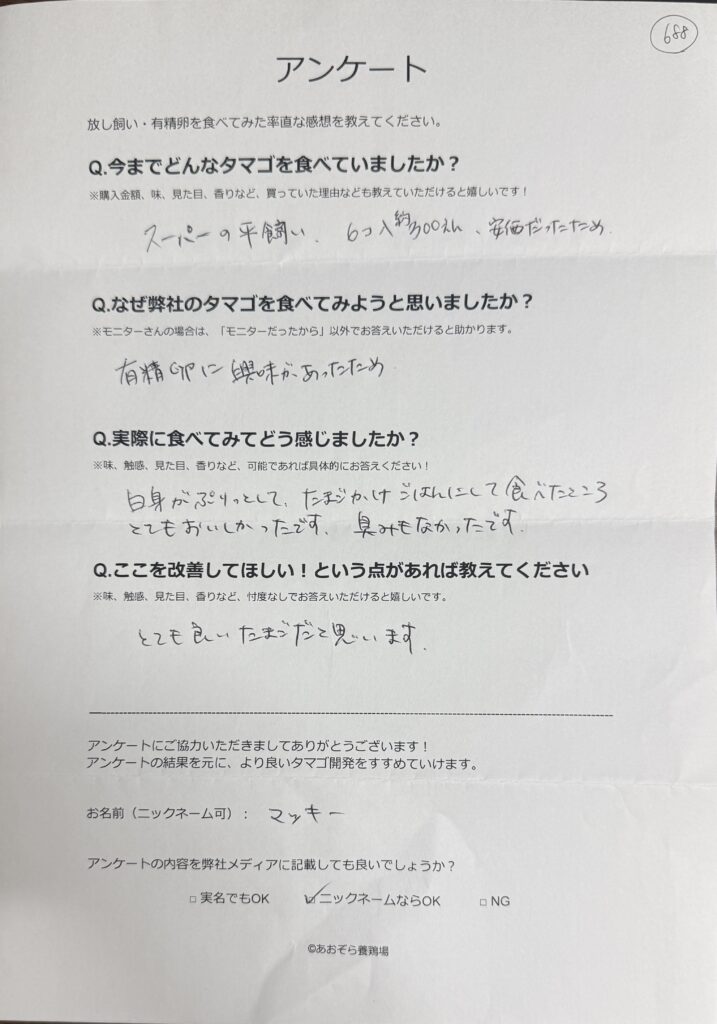 688
アンケート
放し飼い・有精卵を食べてみた率直な感想を教えてください。
Q.今までどんなタマゴを食べていましたか？
※購入金額、味、見た目、香りなど、買っていた理由なども教えていただけると嬉しいです！
スーパーの平飼い、6コ入約300えん、安価だったため.
Q.なぜ弊社のタマゴを食べてみようと思いましたか？
※モニターさんの場合は、「モニターだったから」以外でお答えいただけると助かります。
有精卵に興味があったため.
Q.実際に食べてみてどう感じましたか？
※味、触感、見た目、香りなど、可能であれば具体的にお答えください！
白身がぷりっとして、たまごかけごはんにして食べたところ
とてもおいしかったです、臭みもなかったです.
Q.ここを改善してほしい！という点があれば教えてください
※味、触感、見た目、香りなど、忖度なしでお答えいただけると嬉しいです。
とても良いたまごだと思います.
アンケートにご協力いただきましてありがとうございます！
アンケートの結果を元に、より良いタマゴ開発をすすめていけます。
お名前（ニックネーム可）： マッキー
アンケートの内容を弊社メディアに記載しても良いでしょうか？
□ 実名でもOK ☑ニックネームならOK □ NG
©あおぞら養鶏場